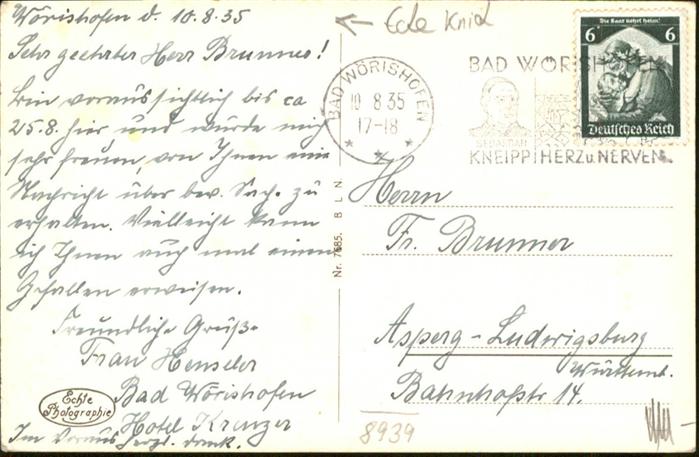 Wörishofen d. 10.8.35
Sehr geehrter Herr Brunner!
Bin voraussichtlich bis ca
25.8. hier und würde mich
sehr freuen, von Ihnen eine
Nachricht über bew. Sach. zu
erhalten. Vielleicht kann
ich Ihnen auch mal einen
Gefallen erweisen.
Freundliche Grüße
Frau Henseler
Bad Wörishofen
Hotel Kreuzer
Im Voraus herzl. dank.
Echte
Photographie
Nr. 7685. B L N.
Ecke Knick
BAD WÖRISHOFEN
10.8.35
17-18
BAD WÖRISHOFEN
SEBASTIAN
KNEIPP HERZ u. NERVEN
Die Saar kehrt heim!
6 6
Deutsches Reich
Herrn
Fr. Brunner
Asperg-Ludwigsburg
Württemb.
Bahnhofstr 14.
8939